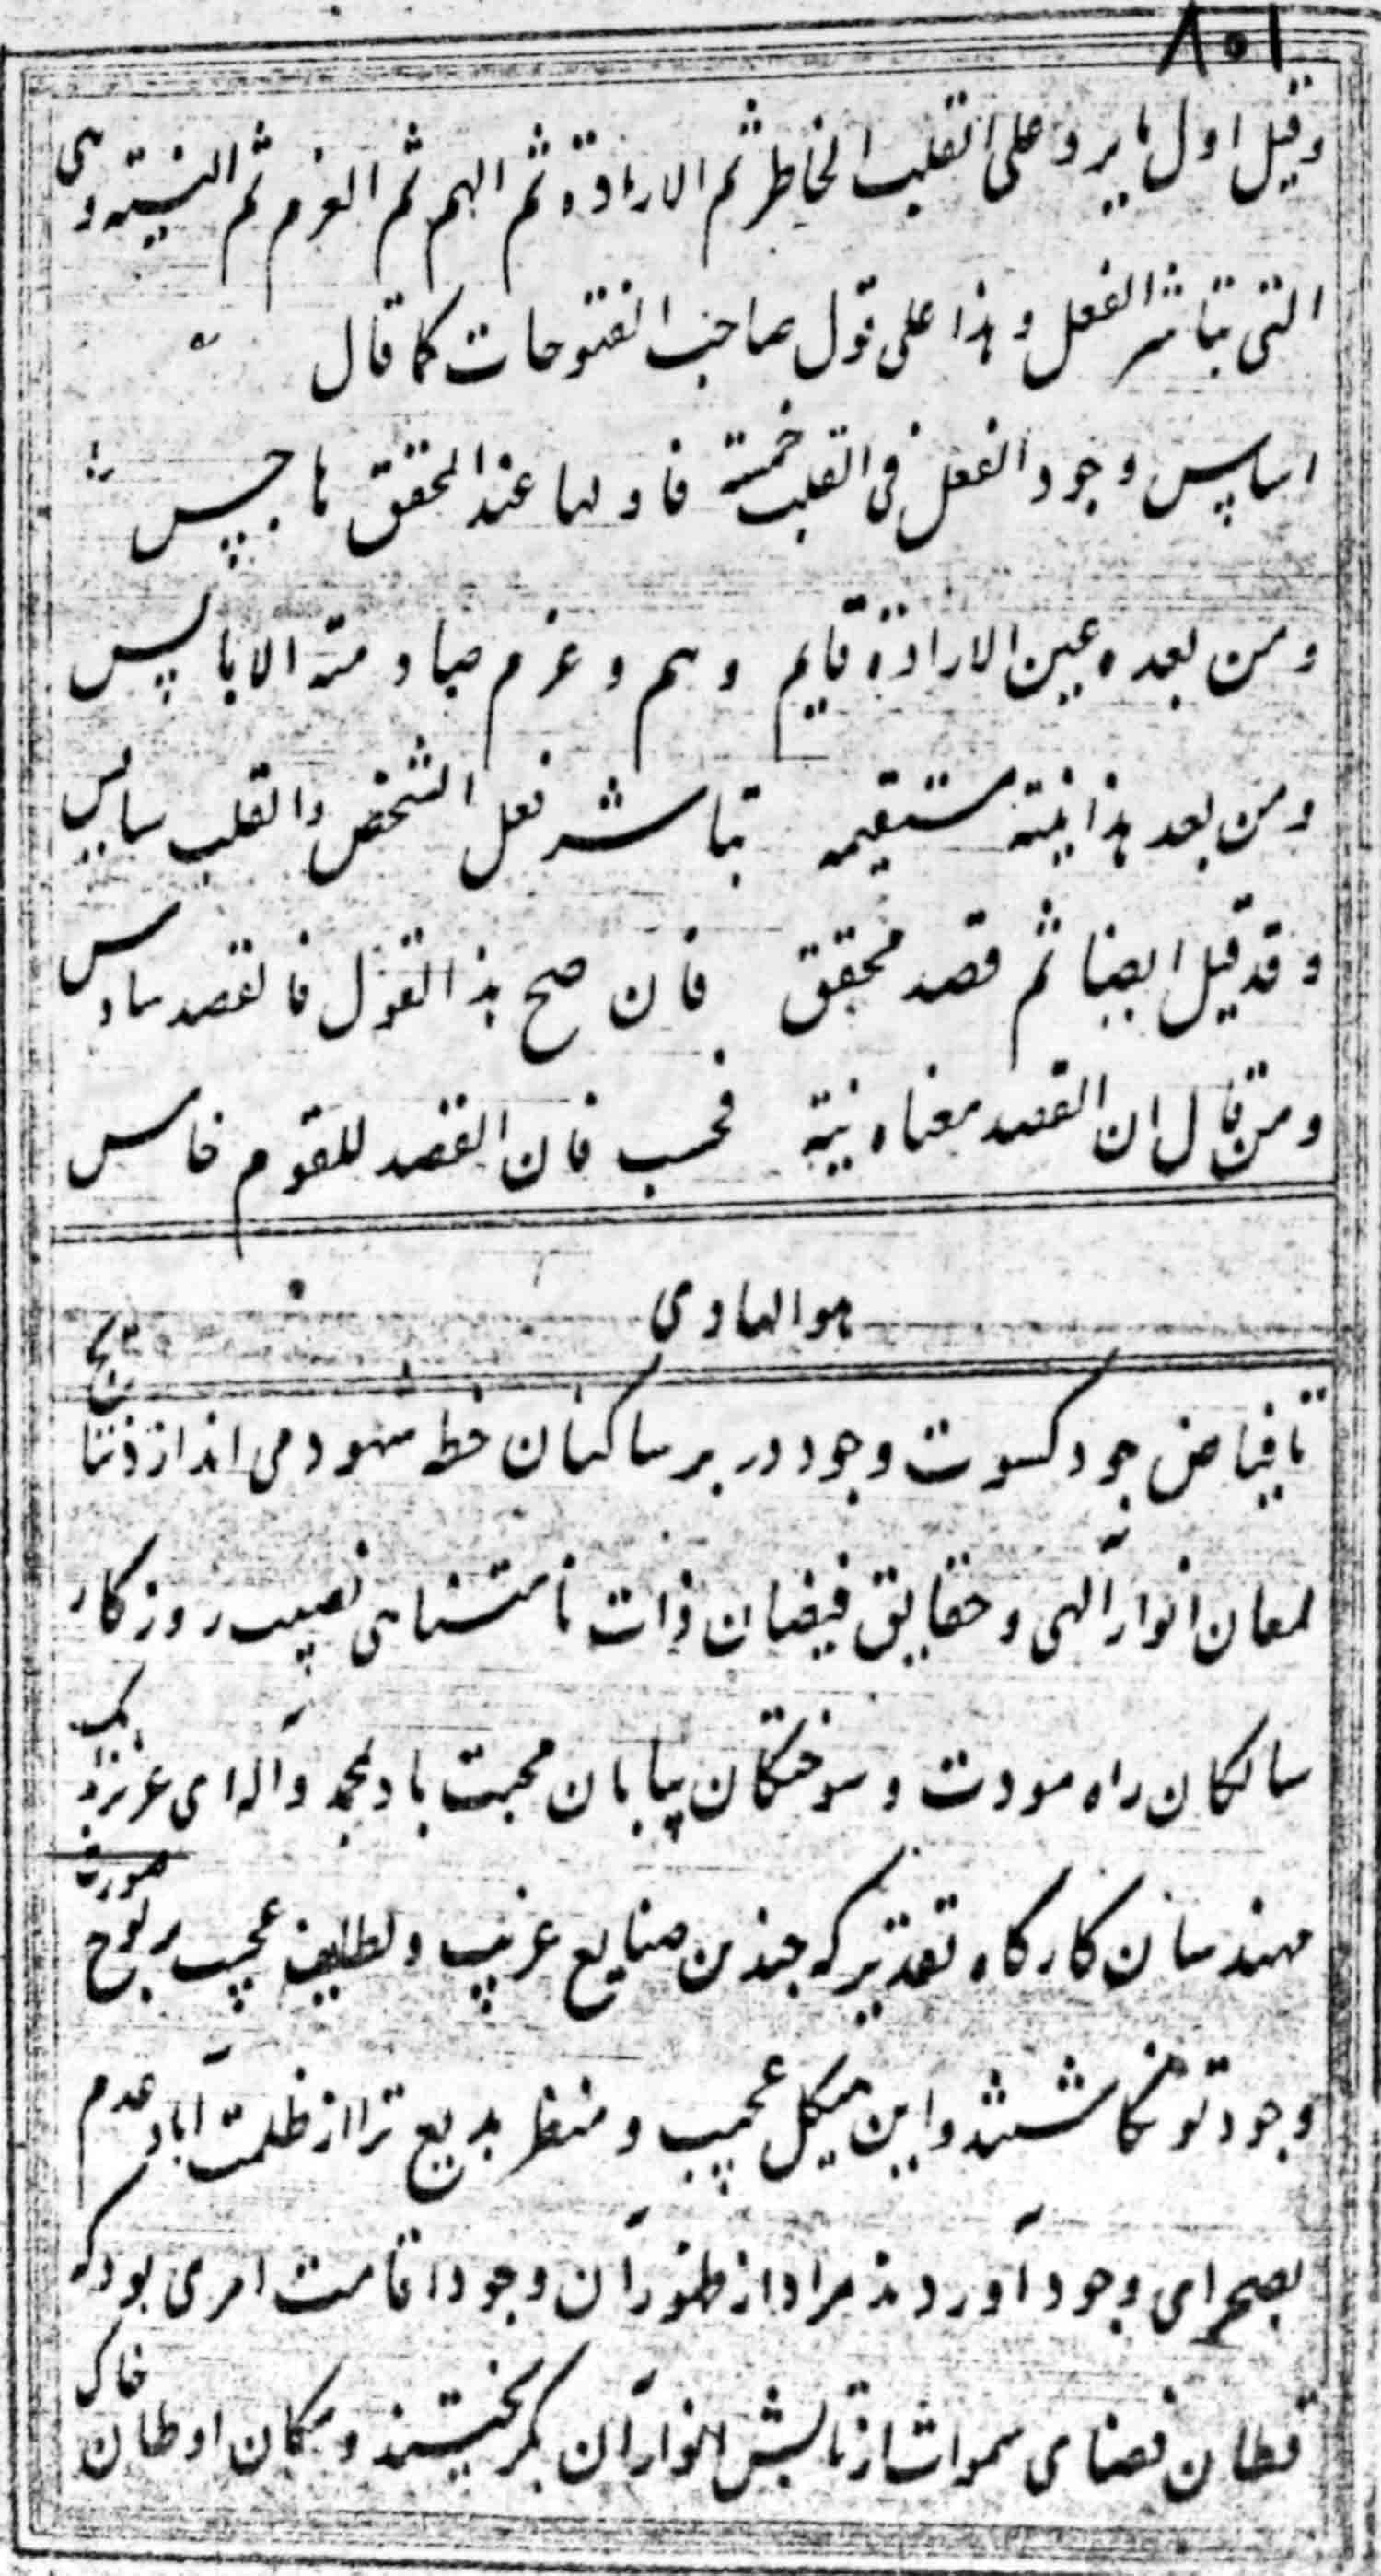 ۸۰۱
وقیل اول ما یرد علی القلب الخاطر ثم الارادة ثم الهم ثم العزم ثم النیته وهی
التی تباشر الفعل و هذا علی قول صاحب الفتوحات کما قال
اساس وجود الفعل فی القلب خمسة فاولها عند المحقق هاجس
ومن بعده عین الارادة قایم وهم و عزم صادمته الاباس
ومن بعد هذا نیته مستقیمه تباشر فعل الشخص والقلب سایس
وقد قیل ایضا ثم قصد محقق فان صح هذا القول فالقصد سادس
ومن قال ان القصد معناه نیة فحسب فان القصد للقوم خامس
هو الهادی
تا فیاض جود کسوت وجود در بر ساکنان خطه شهود می اندازد نتایج
لمعان انوار آلهی و حقایق فیضان ذات نامتناهی نصیب روزکار
سالکان راه مودت و سوختکان بیابان محبت باد بمحمد و آله ای عزیز بدانک
مهندسان کارکاه تقدیر که چندین صنایع غریب و لطایف عجیب بر لوح صورت
وجود تو نکاشتند و این هیکل عجیب و منظر بدیع ترا از ظلمت آباد عدم
بصحرای وجود آوردند مراد از ظهور آن وجود اقامت امری بود که
قطان فضای سموات از تابش انوار آن بکریختند و سکان اوطان خاک